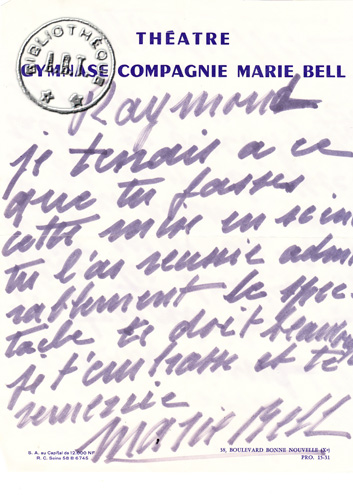 THÉATRE
GYMNASE COMPAGNIE MARIE BELL
BIBLIOTHÈQUE
A.R.T.
Raymond
je tenais a ce
que tu fasses
cette mise en scène
tu l'as reussie admi
rablement le spec
tacle te doit beaucoup
je t'embrasse et te
remercie
Marie Bell
S. A. au Capital de 12.000 NF
R. C. Seine 58 B 6745
38, BOULEVARD BONNE NOUVELLE (Xe)
PRO. 15-31